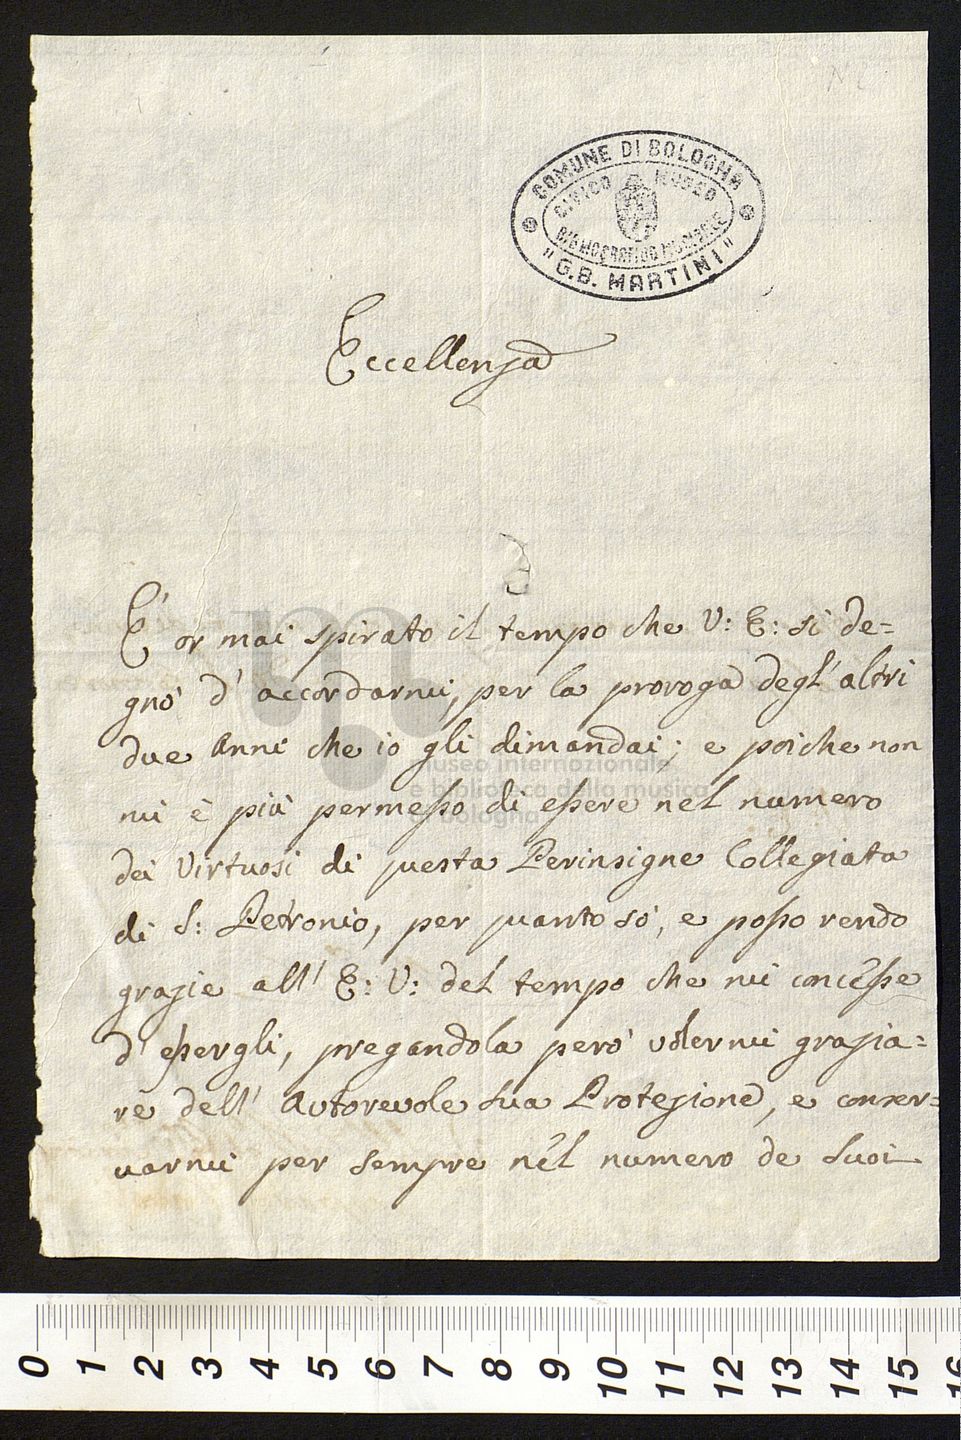 COMUNE DI BOLOGNA
CIVICO MUSEO
BIBLIOGRAFICO MUSICALE
"G.B. MARTINI"
Eccellenza
E' or mai spirato il tempo che V: E: si de=
gnò d' accordarmi, per la proroga degl' altri
due Anni che io gli dimandai; e poiche non
mi è più permesso di essere nel numero
dei Virtuosi di questa Perinsigne Collegiata
di S: Petronio, per quanto sò, e posso rendo
grazie all' E: V: del tempo che mi concesse
d' essergli, pregandola però volermi grazia=
re dell' Autorevole sua Protezione, e conser=
varmi per sempre nel numero de suoi
museo internazionale
e biblioteca della musica
di bologna
0 1 2 3 4 5 6 7 8 9 10 11 12 13 14 15 16